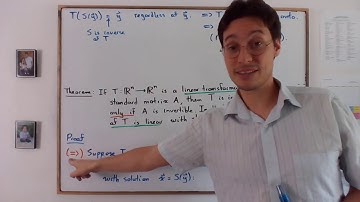 T(S(ȳ)) = ȳ regardless of ȳ. => T onto.
S is inverse
of T
Theorem: If T: ℝⁿ → ℝⁿ is a linear transforma
standard matrix A, then T is i
only if A is invertible. In
of T is linear with s
Proof
(=>) Suppose T
with solution x̄ = S(ȳ).